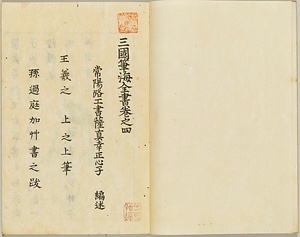 三國筆海全書卷之四
常陽路工書薩真幸正心子 編述
王羲之 上之上筆
孫過庭加艸書之跋